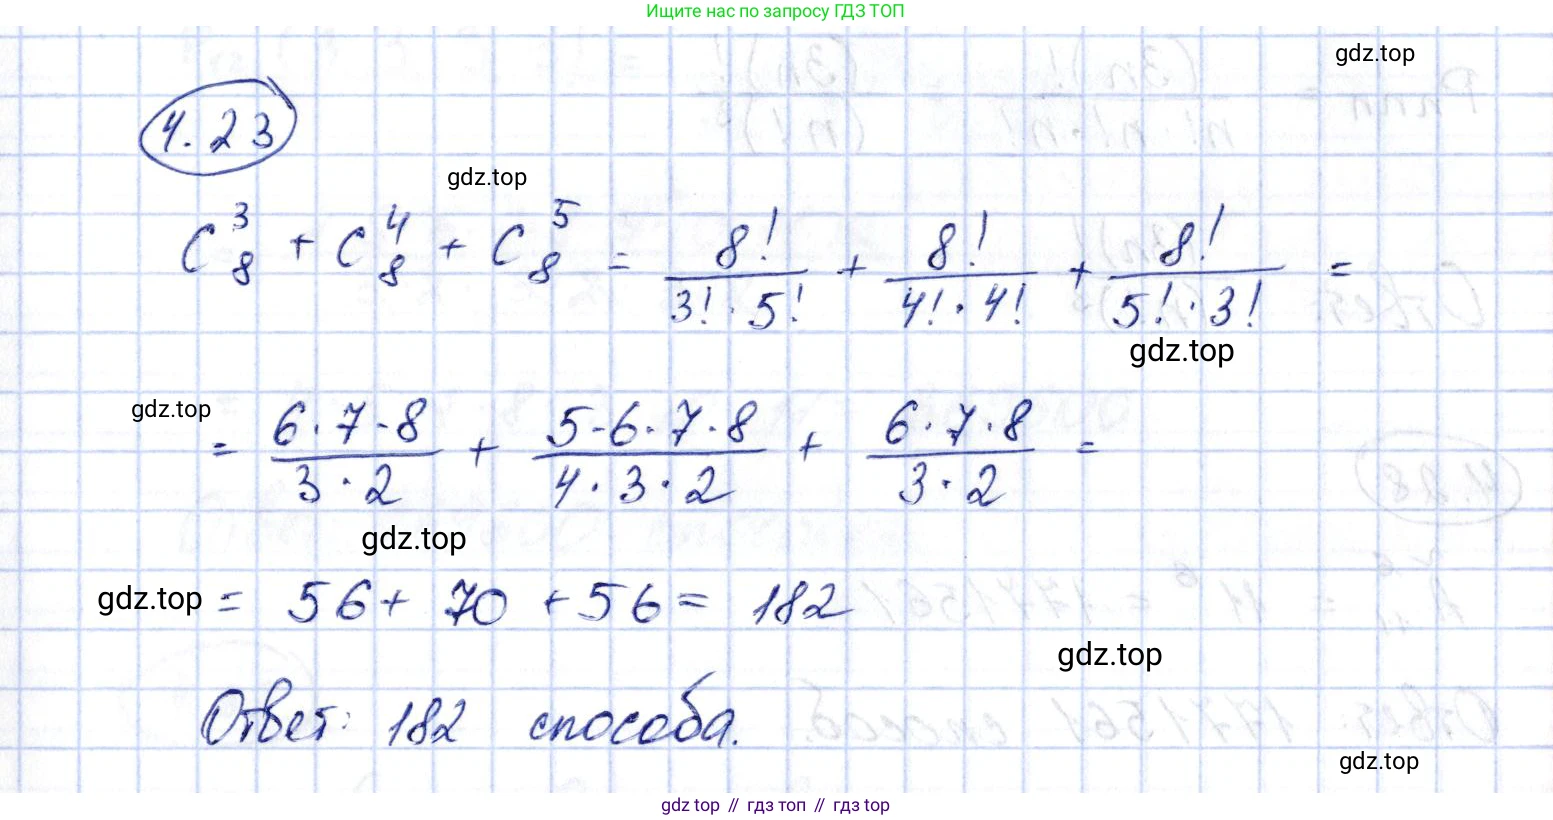 Ищите нас по запросу ГДЗ ТОП
gdz.top
4.23
gdz.top
C₈³ + C₈⁴ + C₈⁵ = 8!/(3!·5!) + 8!/(4!·4!) + 8!/(5!·3!) =
gdz.top
gdz.top
= (6·7·8)/(3·2) + (5·6·7·8)/(4·3·2) + (6·7·8)/(3·2) =
gdz.top
gdz.top
= 56 + 70 + 56 = 182
gdz.top
Ответ: 182 способа.
gdz.top
gdz top // гдз топ // гдз top